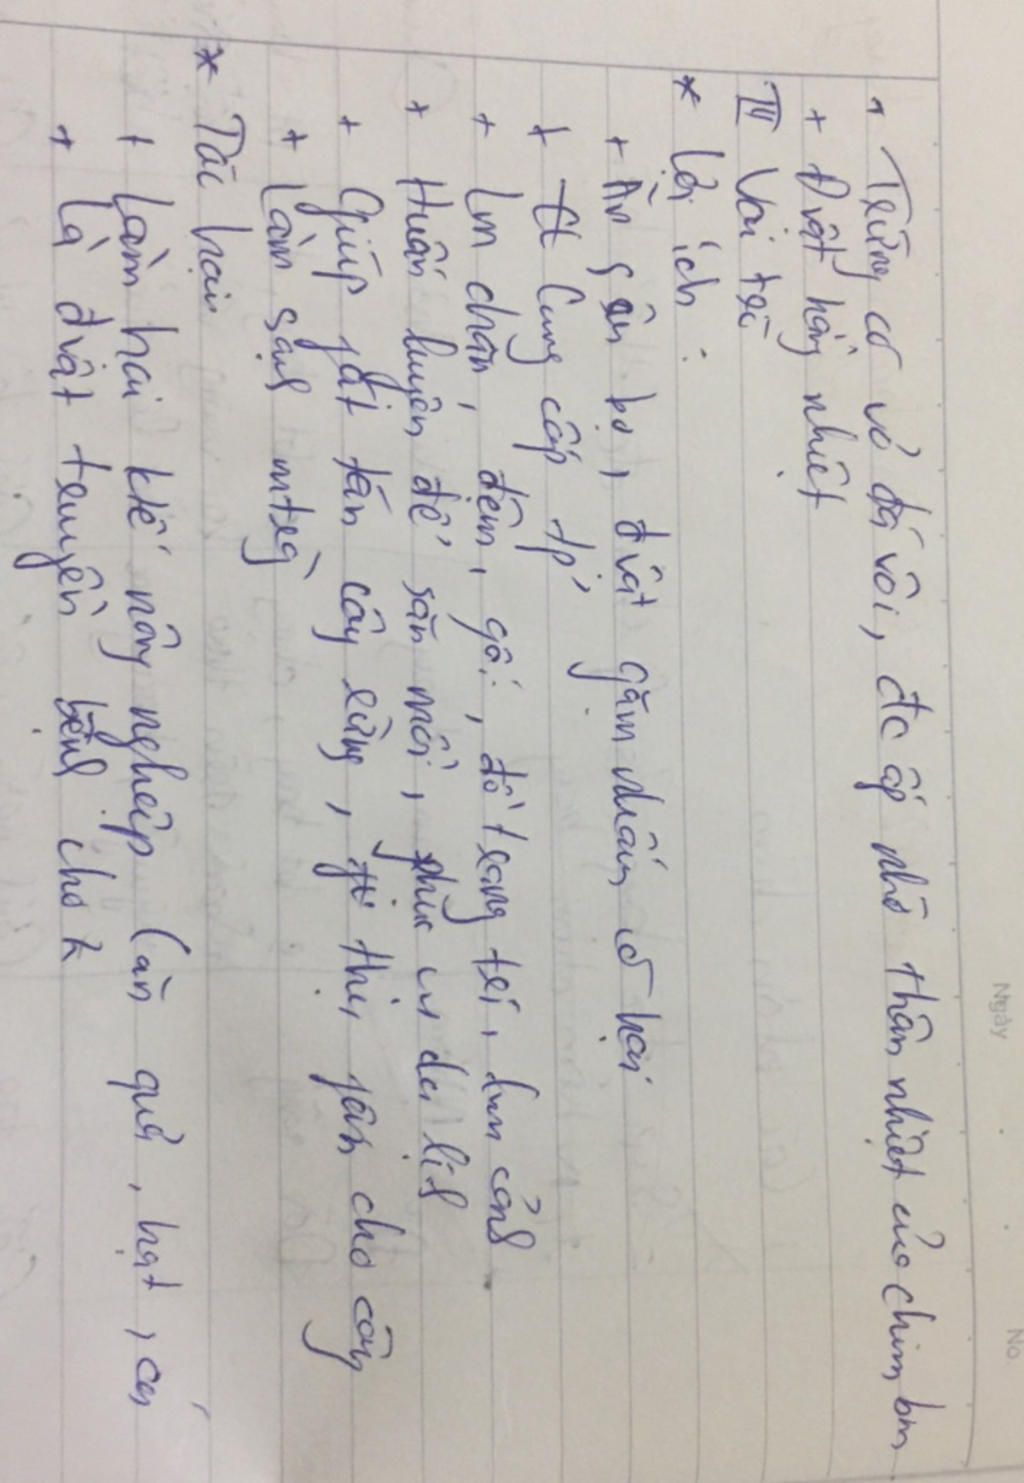 + Trứng có vỏ đá vôi, đc ấp nhờ thân nhiệt của chim bm
+ Đvật hằng nhiệt
III Vai trò
* Lợi ích:
+ Ăn sâu bọ, đvật gặm nhấm có hại
+ Cung cấp tp'
+ Lm chăn, đệm, gối, đồ trang trí, lm cảnh
+ Huấn luyện để săn mồi, phục vụ du lịch
+ Giúp phát tán cây rừng, thụ phấn cho cây
+ Làm sạch mtrg
* Tác hại
+ Làm hại ktế nông nghiệp (ăn quả, hạt, cá
+ Là đvật truyền bệnh cho
Ngày
No.